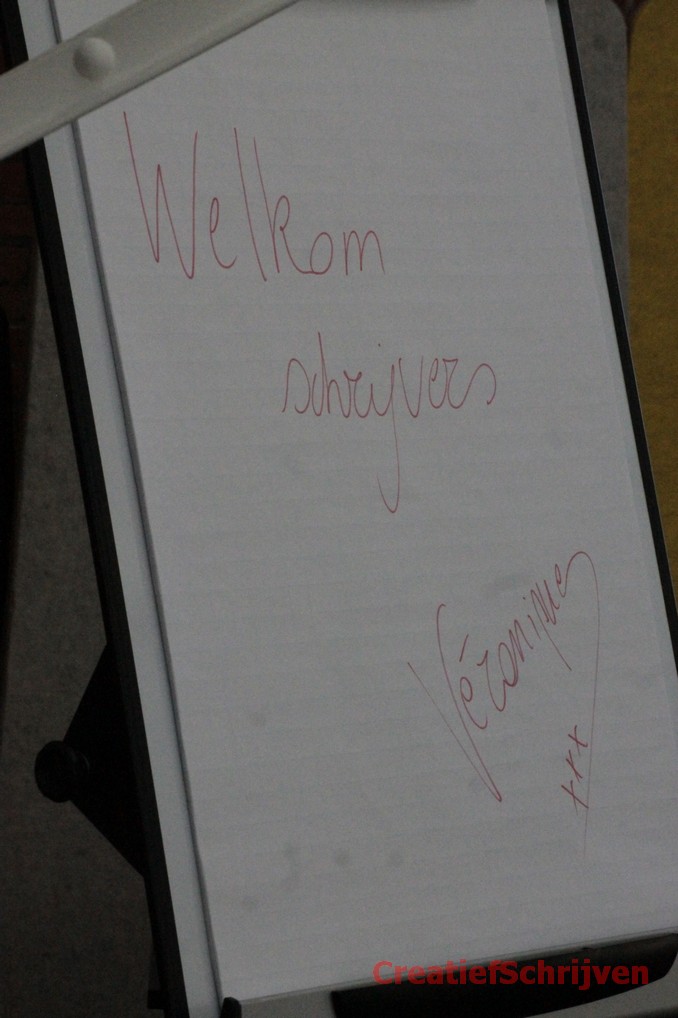 Welkom
schrijvers
Véronique
xxx
CreatiefSchrijven